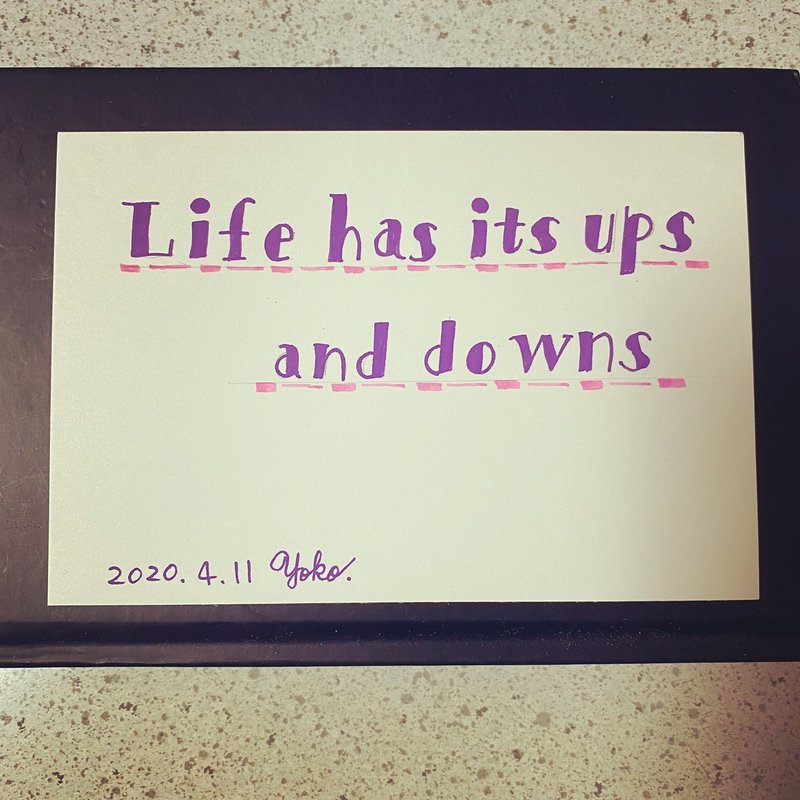 Life has its ups
and downs
2020.4.11 Yoko.